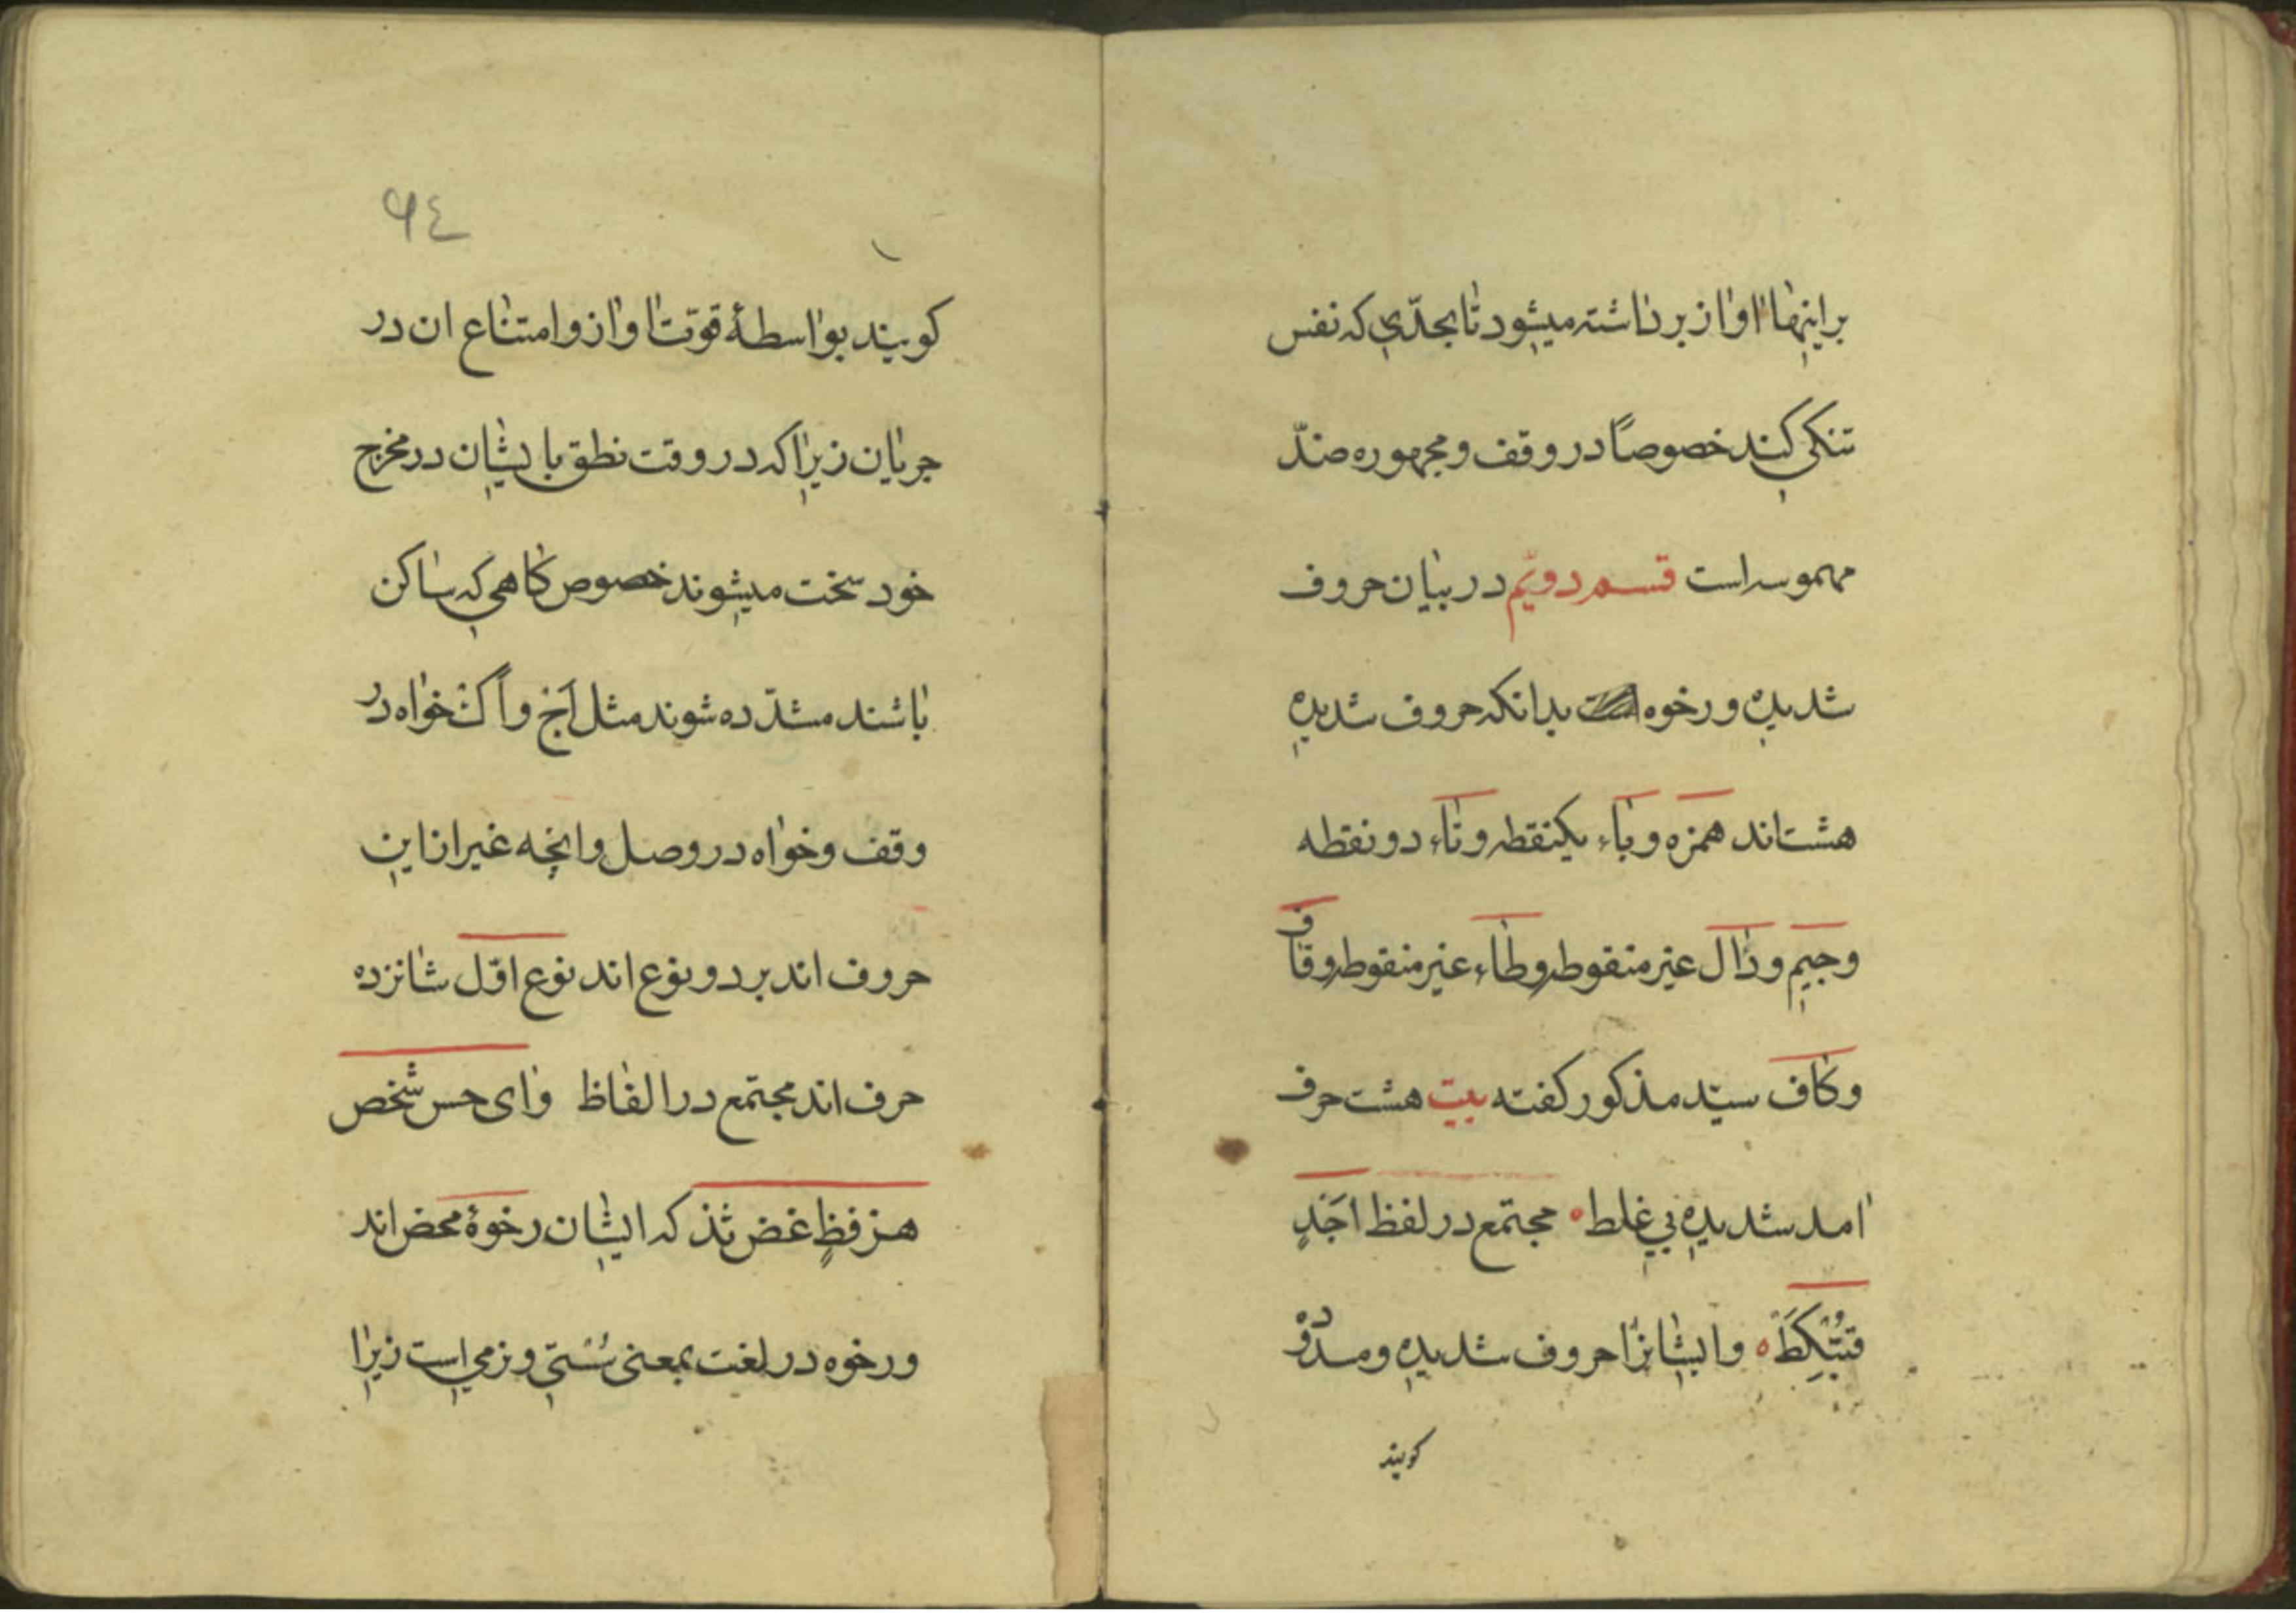 براینها اواز برداشته میشود تا بحدّی که نفس
تنکی کند خصوصًا در وقف و مجهوره ضدّ
مهموسه است قسم دویّم در بیان حروف
شدیده و رخوه بدانکه حروف شدیده
هشت اند همزه و باء یکنقطه و تاء دو نقطه
و جیم و دال غیر منقوطه و طاء غیر منقوطه و قاف
و کاف سیّد مذکور کفته بیت هشت حرف
امد شدیده بی غلط مجتمع در لفظ اَجَدٍ
قتبّکط وایشانرا حروف شدیده و
کویند
٩٤
کویند بواسطهٔ قوّت اواز و امتناع ان در
جریان زیرا که در وقت نطق بایشان در مخرج
خود سخت میشوند خصوص کاهی که ساکن
باشند مشدّده شوند مثل اَجْ و اَکْ خواه در
وقف و خواه در وصل و انچه غیر از این
حروف اند بر دو نوع اند نوع اوّل شانزده
حرف اند مجتمع در الفاظ وای حس شخص
هز فظٍ غض ثذ که ایشان رخوهٔ محض اند
و رخوه در لغت بمعنی سُستی و نرمی است زیرا